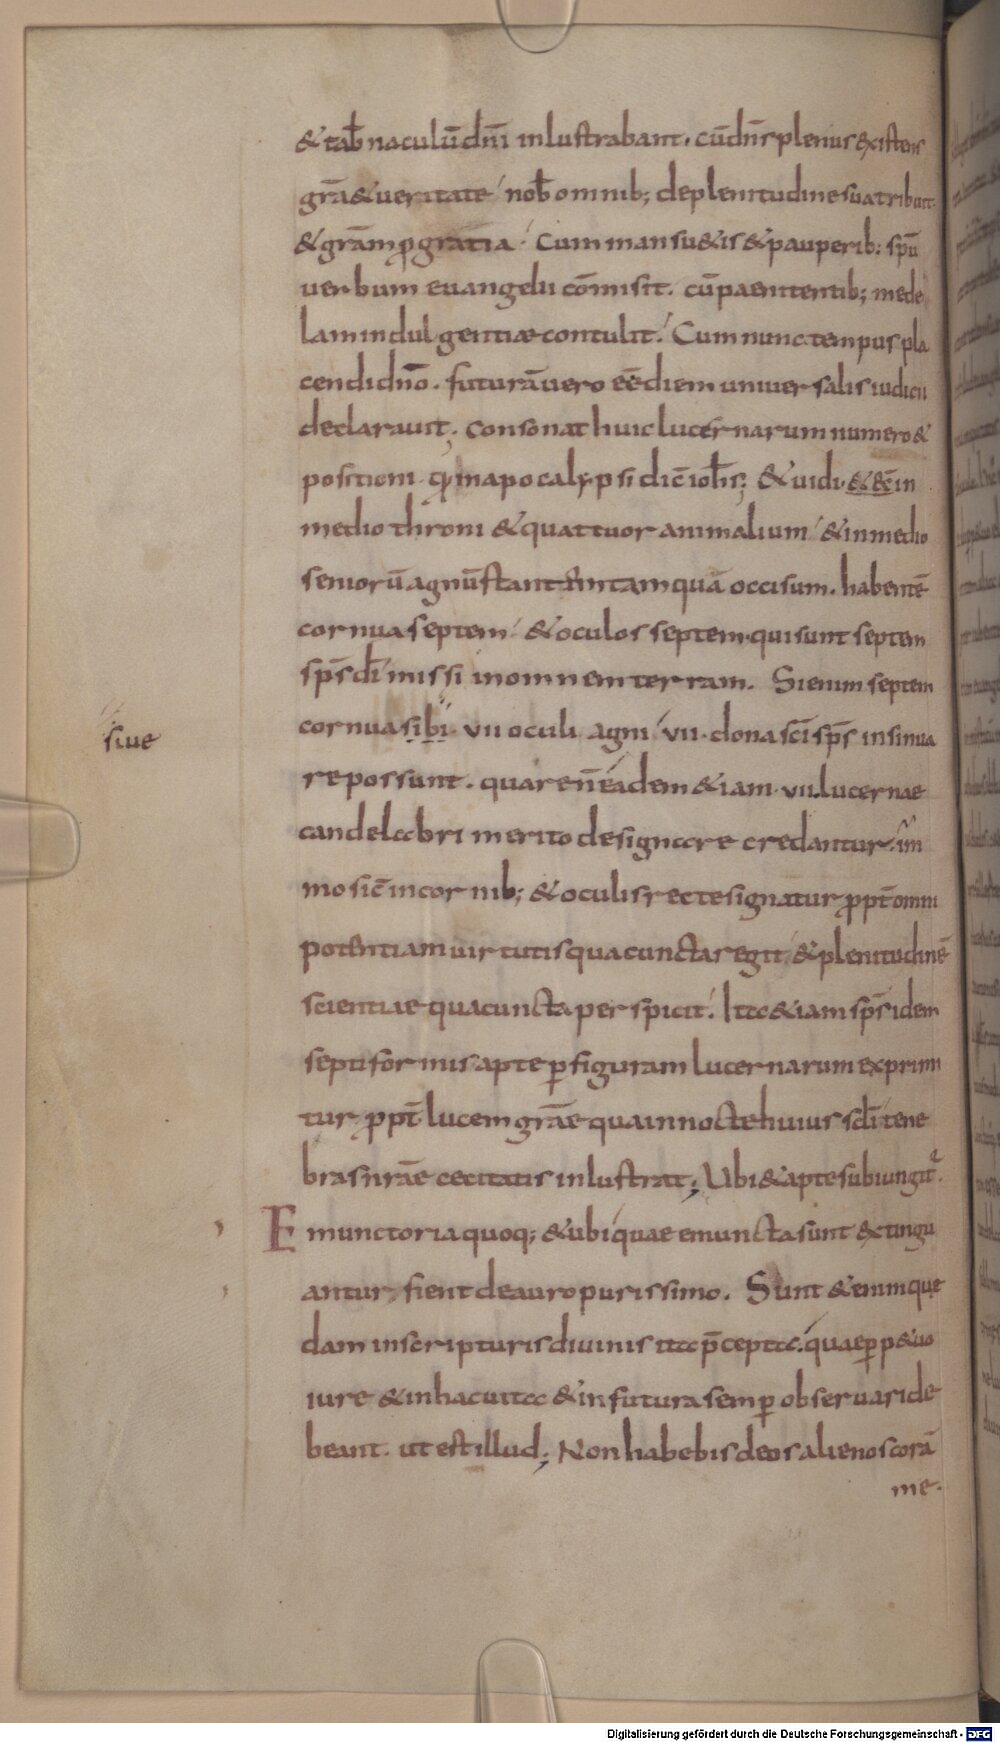 & tab̄naculū dn̄i inlustrabant. cū dn̄s plenius existens
grā & ueritate nob̄ omnib; de plenitudine sua tribuit
& grām ꝓ gratia. Cum mansu&is & pauperib: spū
uerbum euangelii cōmisit. cū paenitentib; mede
lam indulgentiae contulit. Cum nunc tempus pla
cendi dn̄o. futurā uero eē diem uniuersalis iudicii
declarauit; Consonat huic lucernarum numero &
positioni. qd in apocalypsi dic̄ ioh̄s; & uidi. & ecc̄ in
medio throni & quattuor animalium & in medio
seniorū agnū stantem tamquā occisum. habentē
cornua septem. & oculos septem. qui sunt septem
sp̄s dī missi in omnem terram. Si enim septem
cornua sibi. vii oculi agni vii. dona sc̄i sp̄s insinua
siue
re possunt. quare n̄ eadem &iam. vii. lucernae
candelabri merito designare credantur. im
mo sic̄ in cornib; & oculis recte signatur ꝓpt̄ omni
potentiam uirtutis qua cuncta regit & plenitudinē
scientiae qua cuncta perspicit. Ita &iam sp̄s idem
septiformis apte ꝑ figuram lucernarum exprimi
tur ꝓpt̄ lucem grāe qua in nocte huius scl̄i tene
bras nrāe cecitatis inlustrat; Ubi & apte subiungit̄.
Emunctoria quoq; & ubi quae emuncta sunt extingu
antur, fient de auro purissimo. Sunt &enim quę
dam in scripturis diuinis ita p̄cepta. quae ꝑp&uo
iure & in hac uita & in futura semꝑ obseruari de
beant. ut est illud; Non habebis deos alienos corā
me.
Digitalisierung gefördert durch die Deutsche Forschungsgemeinschaft - DFG